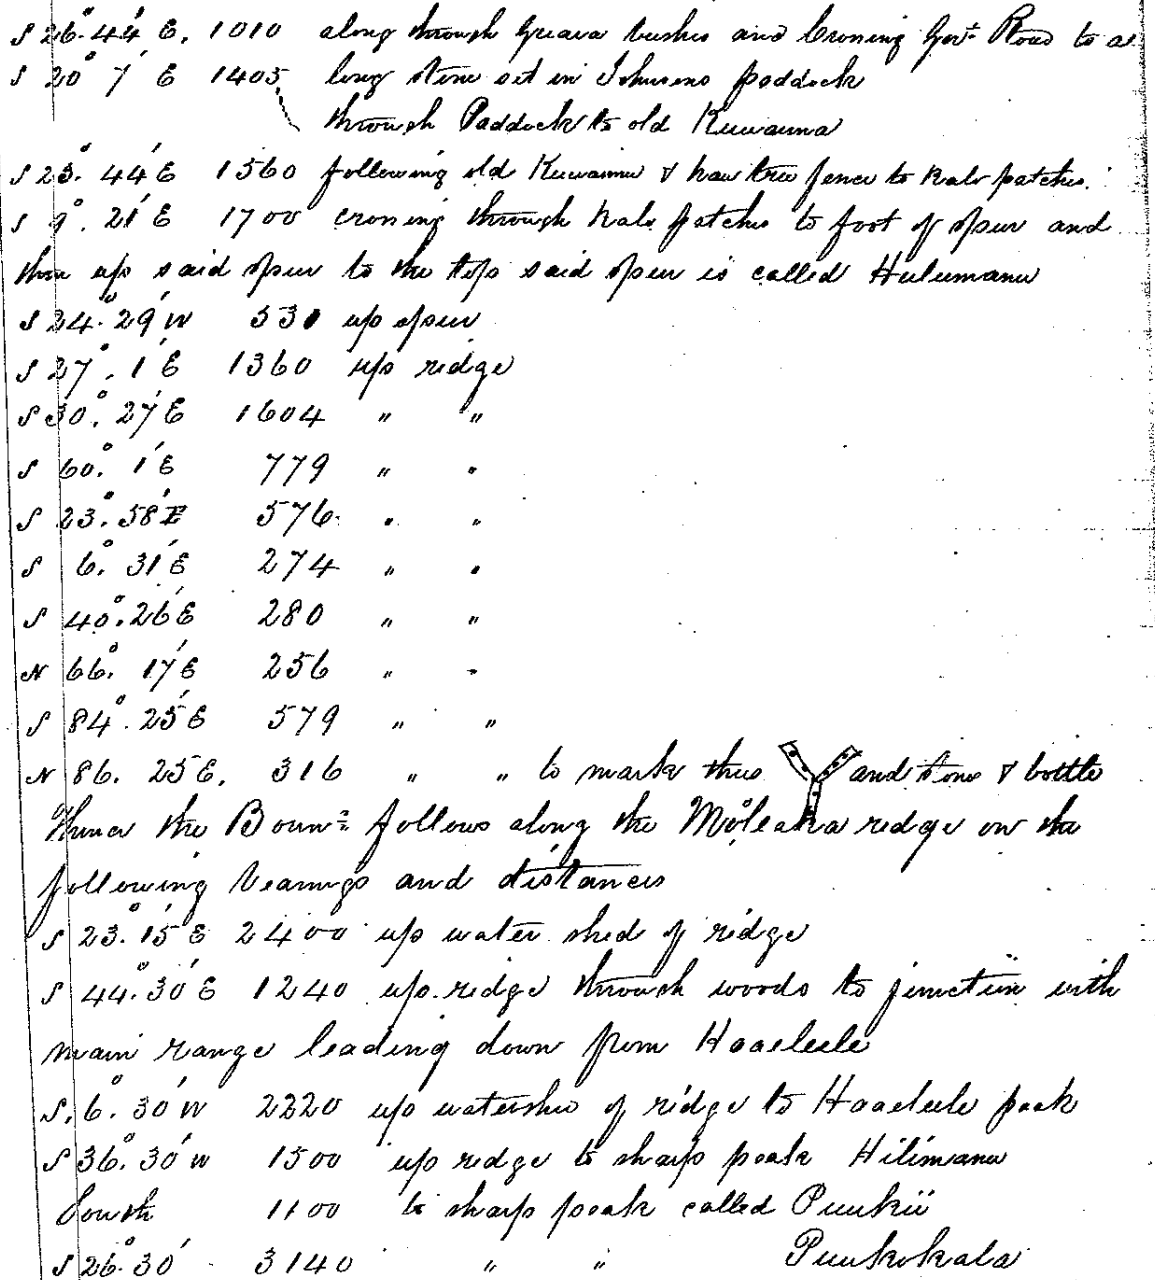 S 26° 44' E, 1010 along through Guava bushes and Crossing Gov't Road to a
S 20° 7' E 1405 long stone set in Johnsons paddock
through Paddock to old Kuwauna
S 23° 44' E 1560 following old Kuwauna & hau tree fence to Kalo patches.
S 9° 21' E 1700 crossing through Kalo patches to foot of spur and
then up said spur to the top said spur is called Hulumanu
S 24° 29' W 530 up spur
S 27° 1' E 1360 up ridge
S 30° 27' E 1604 " "
S 60° 1' E 779 " "
S 23° 58' E 576 " "
S 6° 31' E 274 " "
S 40° 26' E 280 " "
N 66° 17' E 256 " "
S 84° 25' E 579 " "
N 86. 25 E, 316 " " to mark thus Y and stone & bottle
Thence the Boun= follows along the Moleana ridge on the
following bearings and distances
S 23° 15' E 2400 up water shed of ridge
S 44° 30' E 1240 up ridge through woods to junction with
main range leading down from Haaelele
S, 6° 30' W 2220 up watershed of ridge to Haaelele peak
S 36° 30' W 1500 up ridge to sharp peak Hilimanu
South 1100 to sharp peak called Puukii
S 26° 30' 3140 " " Puukokala